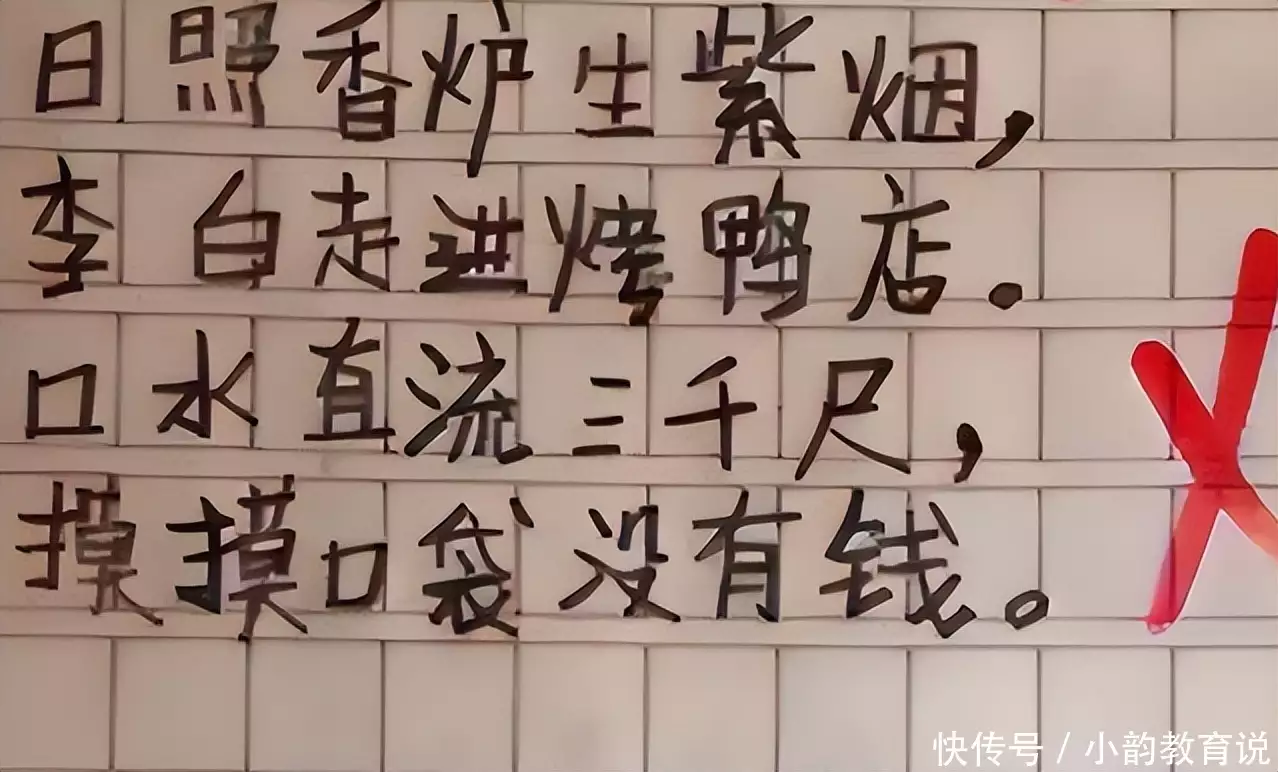 日照香炉生紫烟，
李白走进烤鸭店。
口水直流三千尺，
摸摸口袋没有钱。
快传号 / 小韵教育说